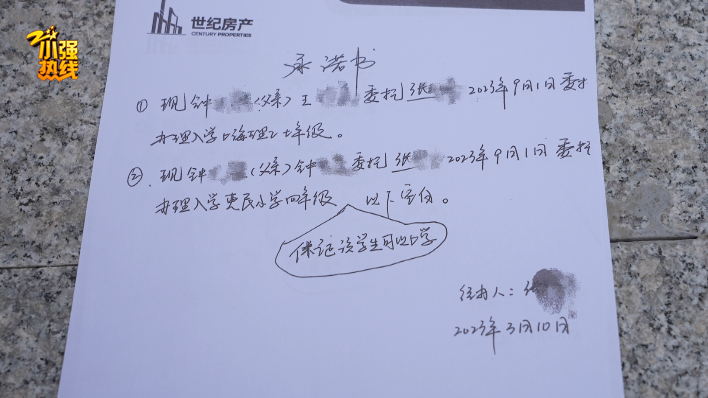 小强热线
世纪房产
CENTURY PROPERTIES
承诺书
① 现钟（父亲）王 委托张 2023年9月1日委托
办理入学上海理工七年级。
②.现钟（父亲）钟 委托张 2023年9月1日委托
办理入学惠民小学四年级 以下空白。
保证该学生可以上学
经办人：张
2023年3月10日